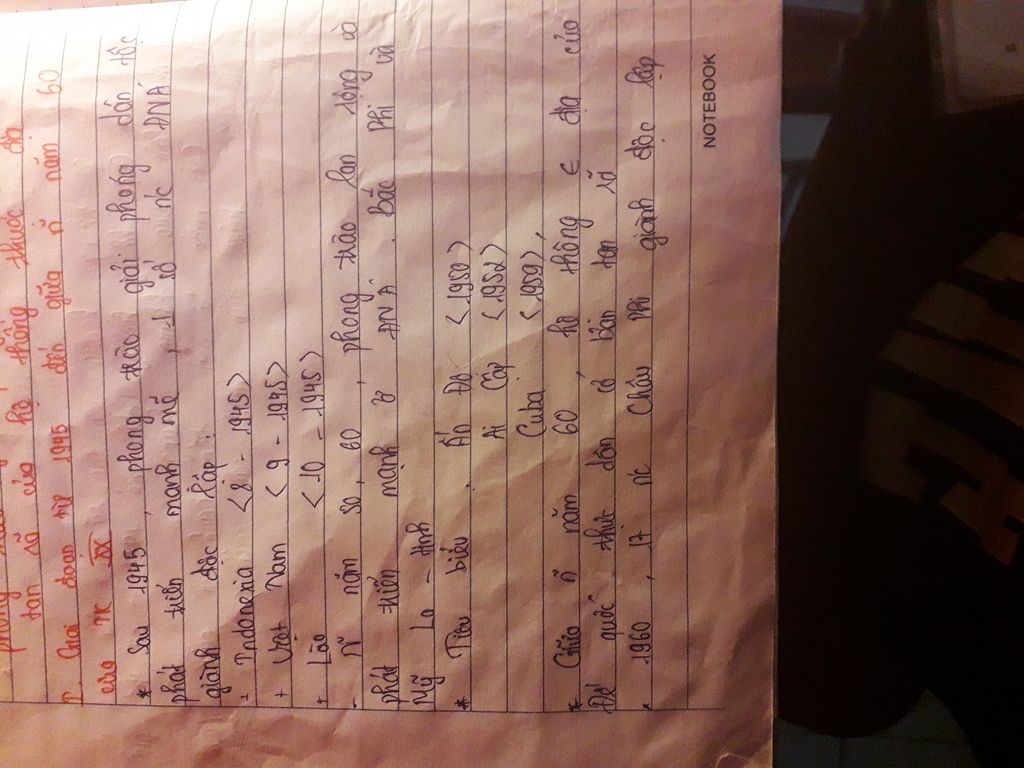 phong trào
tan rã của hệ thống thuộc địa
I. Giai đoạn từ 1945 đến giữa ~ năm 60
của TK XX
* Sau 1945, phong trào giải phóng dân tộc
phát triển mạnh mẽ, 1 số nc ĐNÁ
giành độc lập.
+ Indonexia <8 - 1945>
+ Việt Nam <9 - 1945>
+ Lào <10 - 1945>
- ~ năm 50, 60, phong trào lan rộng và
phát triển mạnh ở ĐNÁ. Bắc Phi và
Mỹ La - tinh
* Tiêu biểu. Ấn Độ <1950>
Ai Cập <1952>
Cuba <1959>,
* Giữa ~ năm 60 hệ thống € địa của
Đế quốc thực dân cơ bản tan rã
* 1960, 17 nc Châu Phi giành độc lập
NOTEBOOK